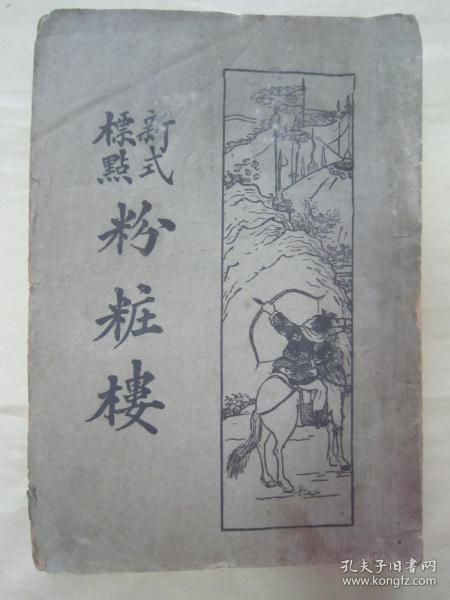 新式
標點
粉粧樓
孔夫子旧书网
www.kongfz.com